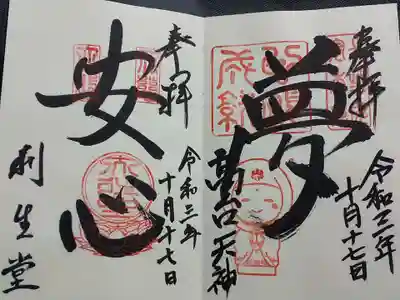 奉拝
夢
葛口天神
令和三年
十月十七日
奉拝
安心
令和三年
十月十七日
利生堂